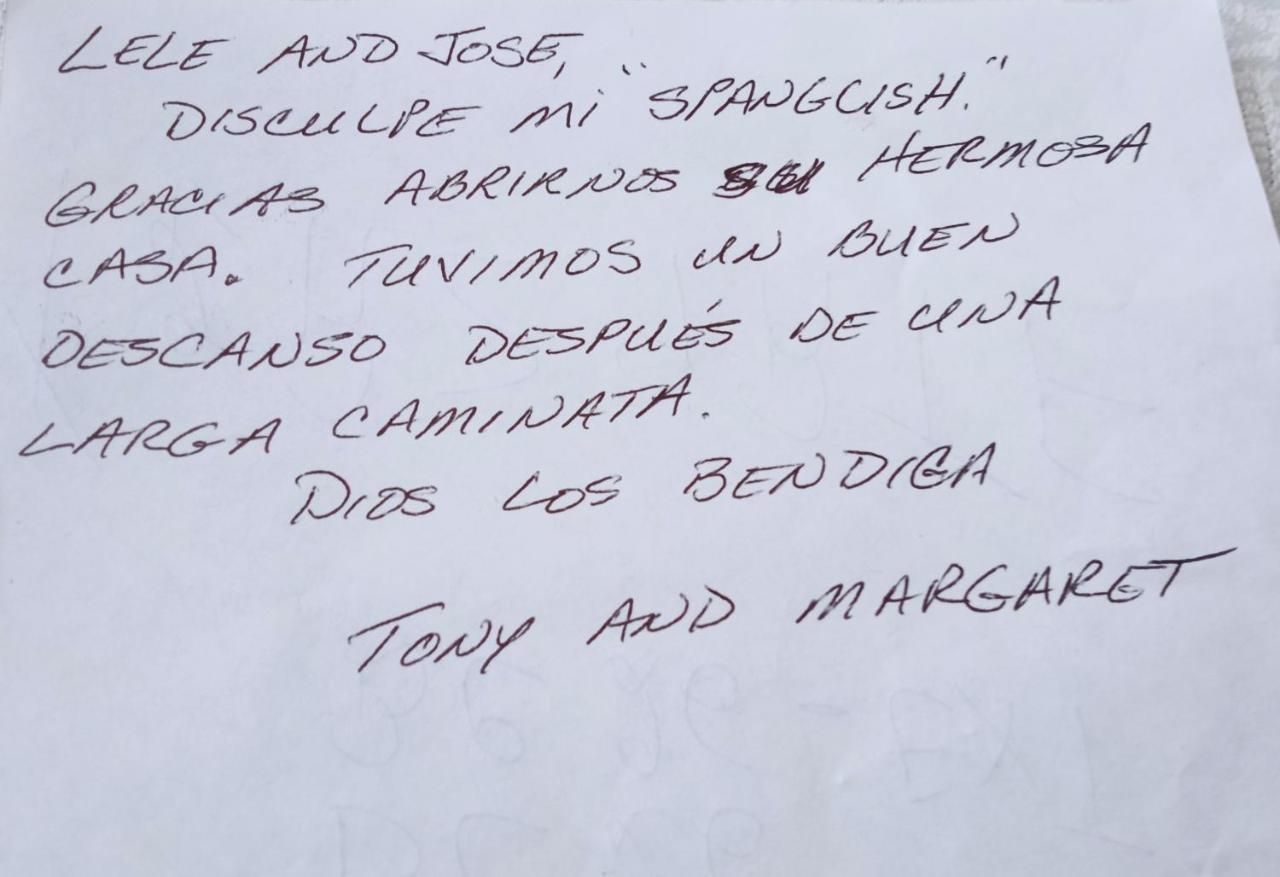 LELE AND JOSE,
DISCULPE Mi "SPANGLISH."
GRACIAS ABRIRNOS SU HERMOSA
CASA. TUVIMOS UN BUEN
DESCANSO DESPUÉS DE UNA
LARGA CAMINATA.
DIOS LOS BENDIGA
TONY AND MARGARET